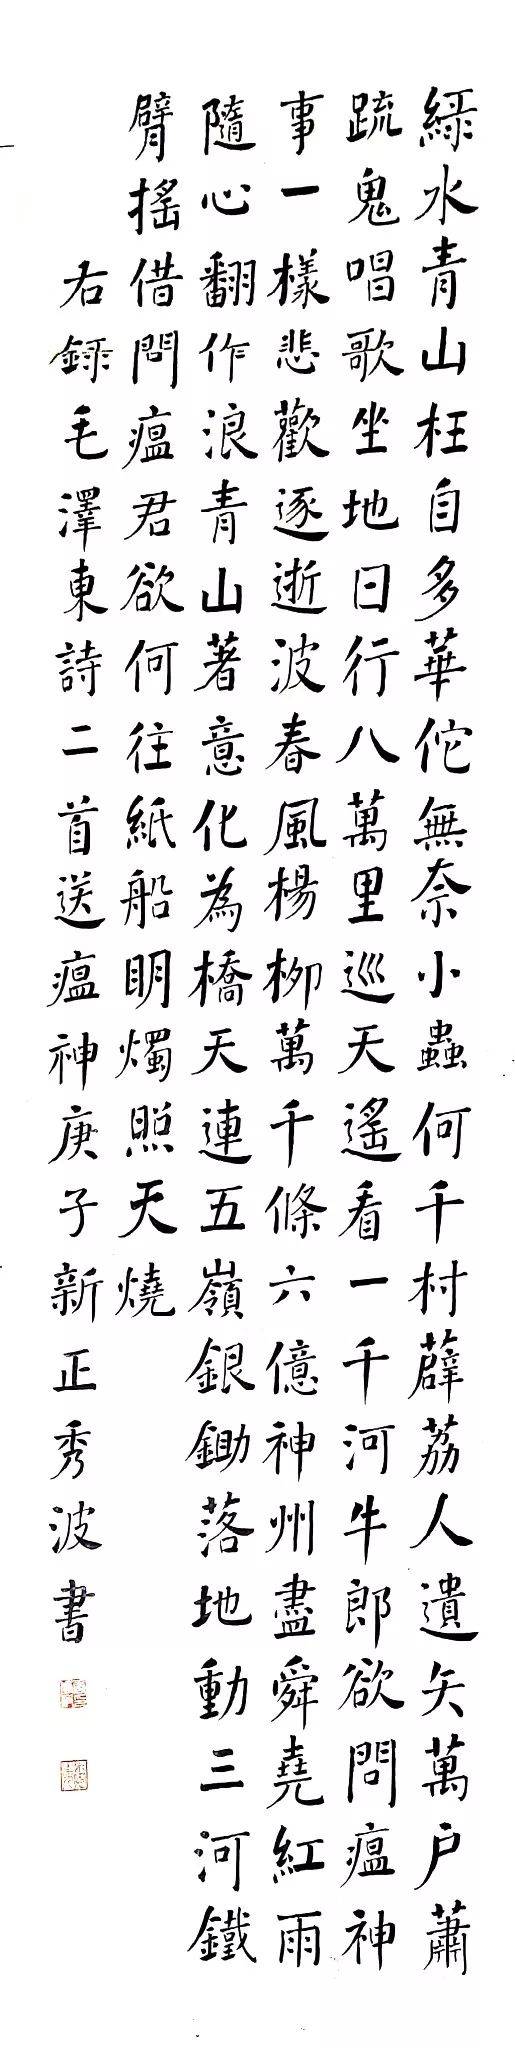 綠水青山枉自多華佗無奈小蟲何千村薜荔人遺矢萬户蕭
疏鬼唱歌坐地日行八萬里巡天遙看一千河牛郎欲問瘟神
事一樣悲歡逐逝波春風楊柳萬千條六億神州盡舜堯紅雨
隨心翻作浪青山著意化為橋天連五嶺銀鋤落地動三河鐵
臂搖借問瘟君欲何往紙船明燭照天燒
右録毛澤東詩二首送瘟神庚子新正秀波書